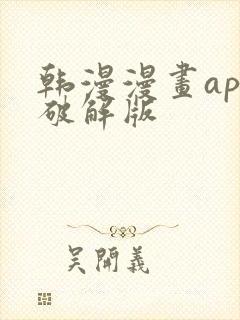 韩漫漫畫ap
破解版
吴開義